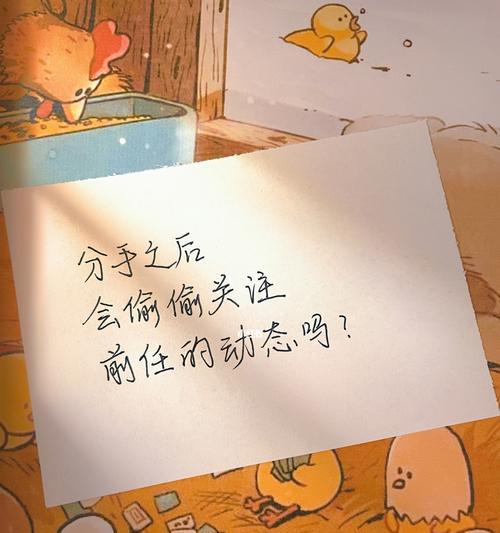 分手之后
会偷偷关注
前任的动态吗？